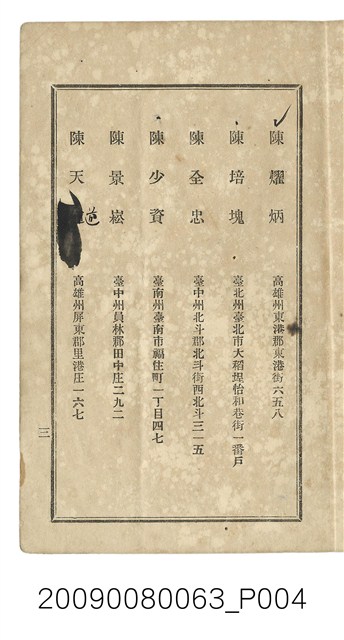 陳燿炳 高雄州東港郡東港街六五八
陳培塊 臺北州臺北市大稻埕怡和巷街一番戶
陳全忠 臺中州北斗郡北斗街西北斗三一五
陳少資 臺南州臺南市福住町一丁目四七
陳景崧 臺中州員林郡田中庄二九二
陳天道 高雄州屏東郡里港庄一六七
三
20090080063_P004